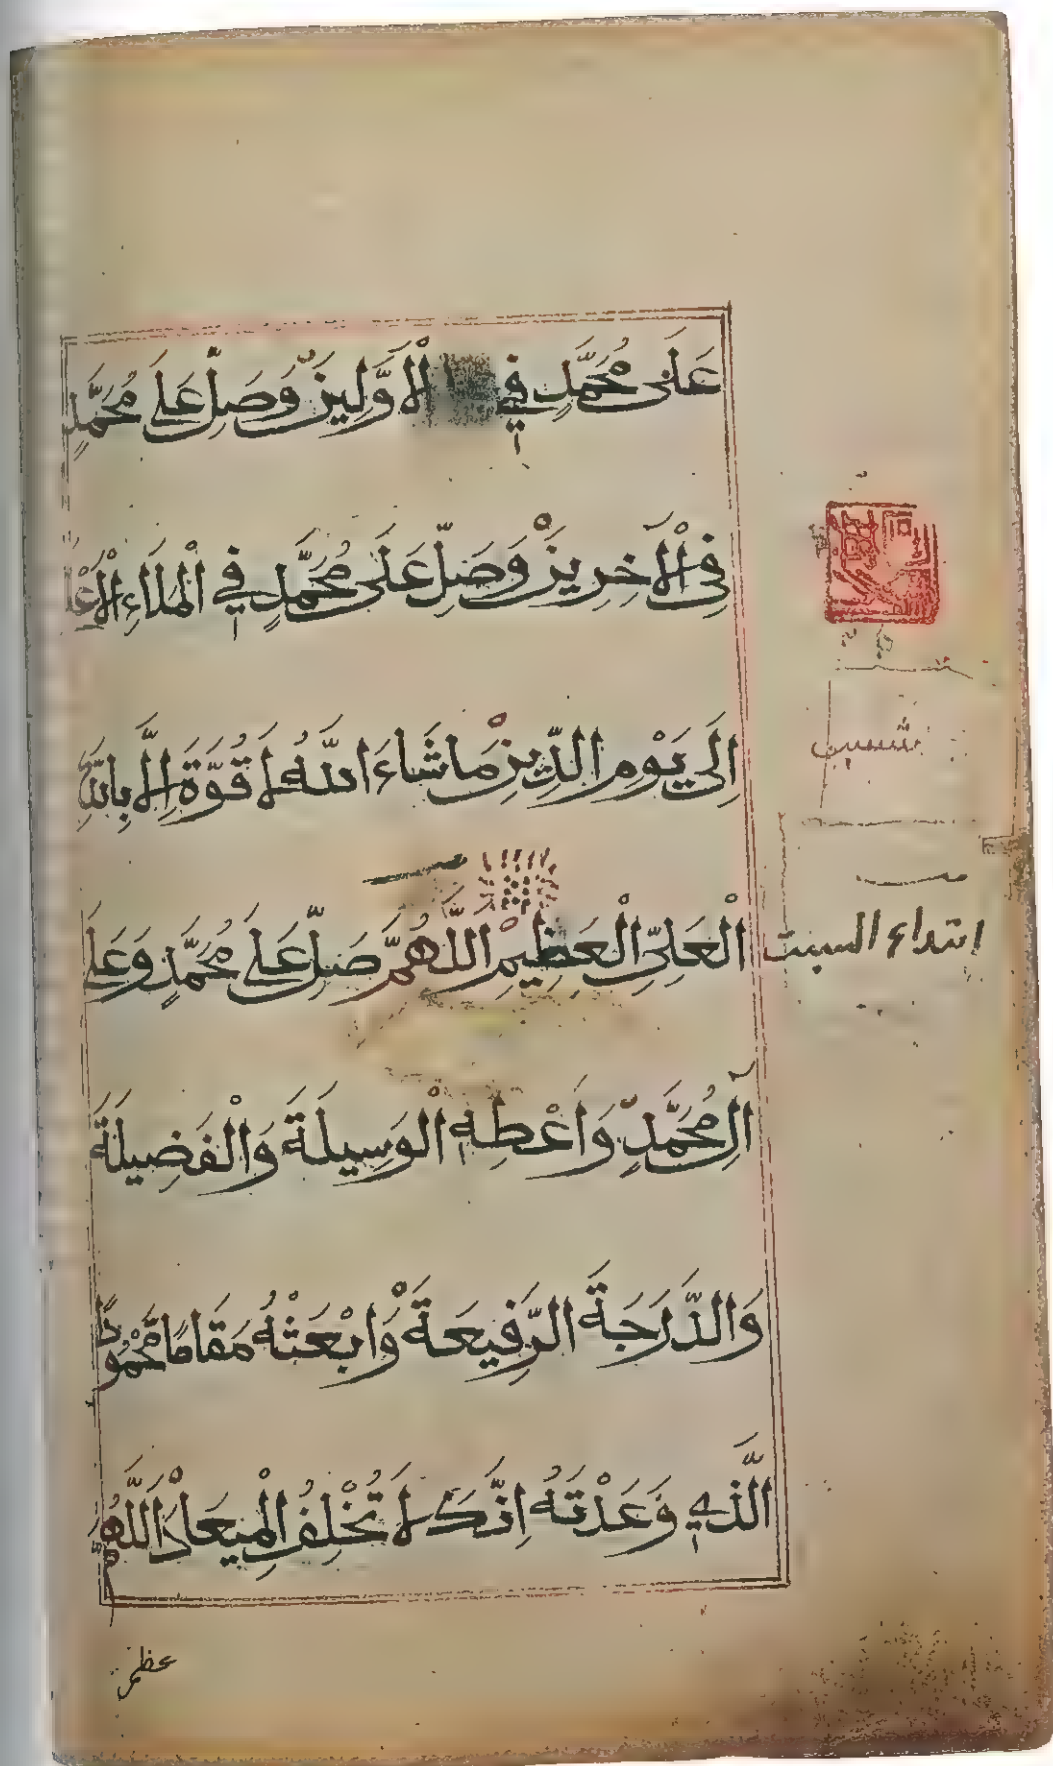 عَلَى مُحَمَّدٍ فِي الْاَوَّلِينَ وَصَلِّ عَلَى مُحَمَّدٍ
فِي الْآخِرِينَ وَصَلِّ عَلَى مُحَمَّدٍ فِي الْمَلَاءِ الْاَعْلَى
اِلَى يَوْمِ الدِّينِ مَا شَاءَ اللَّهُ لَا قُوَّةَ اِلَّا بِاللَّهِ
الْعَلِيِّ الْعَظِيمِ اَللَّهُمَّ صَلِّ عَلَى مُحَمَّدٍ وَعَلَى
ابتداء السبت
آلِ مُحَمَّدٍ وَاَعْطِهِ الْوَسِيلَةَ وَالْفَضِيلَةَ
وَالدَّرَجَةَ الرَّفِيعَةَ وَابْعَثْهُ مَقَامًا مَحْمُودًا
الَّذِي وَعَدْتَهُ اِنَّكَ لَا تُخْلِفُ الْمِيعَادَ اَللَّهُمَّ
عظم